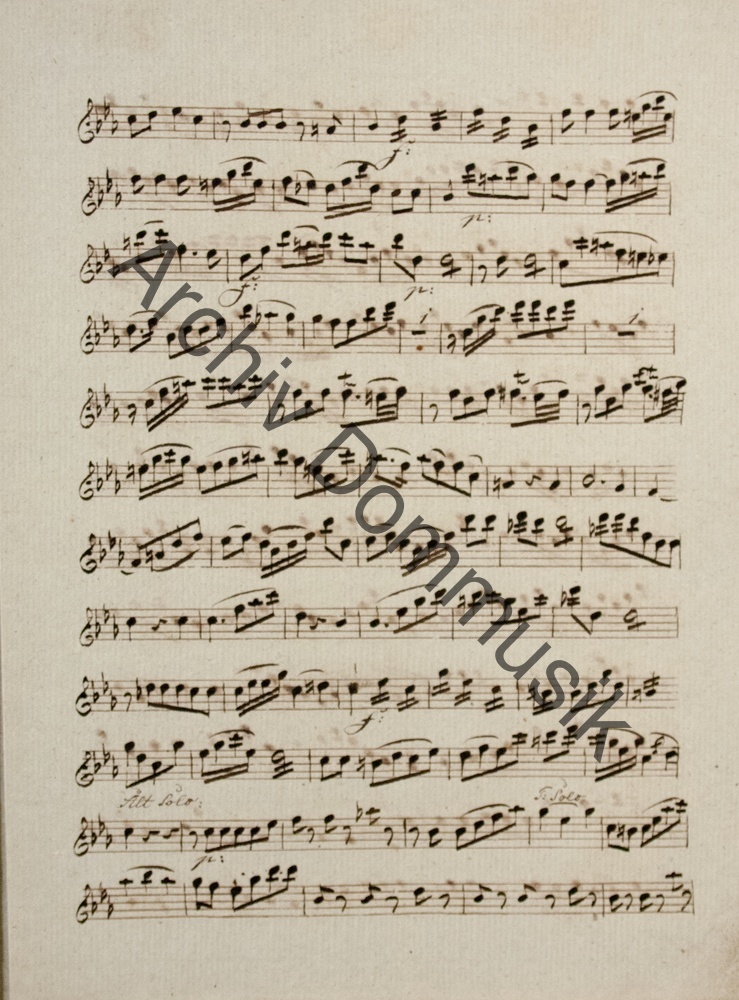 f:
p:
f: p:
f:
Alt Solo: T: Solo
p:
Archiv Dommusik